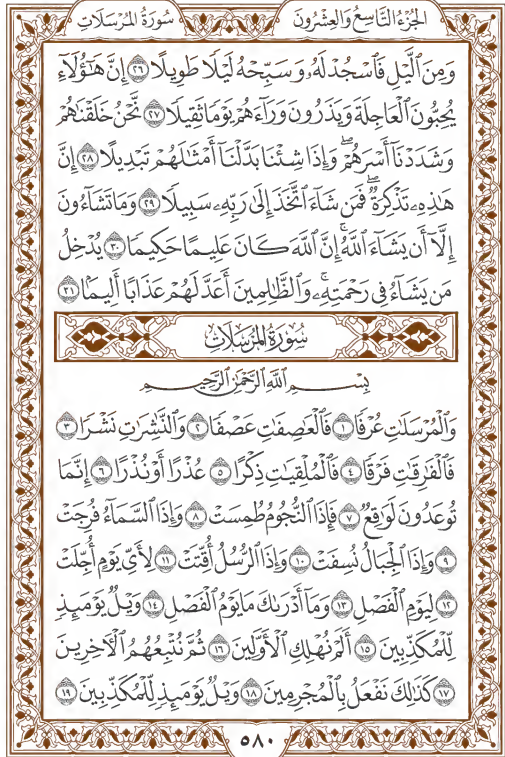 الجُزْءُ التَّاسِعُ وَالعِشْرُونَ
سُورَةُ المُرْسَلَاتِ
وَمِنَ ٱلَّيْلِ فَٱسْجُدْ لَهُۥ وَسَبِّحْهُ لَيْلًا طَوِيلًا ٢٦ إِنَّ هَٰٓؤُلَآءِ
يُحِبُّونَ ٱلْعَاجِلَةَ وَيَذَرُونَ وَرَآءَهُمْ يَوْمًا ثَقِيلًا ٢٧ نَّحْنُ خَلَقْنَٰهُمْ
وَشَدَدْنَآ أَسْرَهُمْۖ وَإِذَا شِئْنَا بَدَّلْنَآ أَمْثَٰلَهُمْ تَبْدِيلًا ٢٨ إِنَّ
هَٰذِهِۦ تَذْكِرَةٌۖ فَمَن شَآءَ ٱتَّخَذَ إِلَىٰ رَبِّهِۦ سَبِيلًا ٢٩ وَمَا تَشَآءُونَ
إِلَّآ أَن يَشَآءَ ٱللَّهُۚ إِنَّ ٱللَّهَ كَانَ عَلِيمًا حَكِيمًا ٣٠ يُدْخِلُ
مَن يَشَآءُ فِى رَحْمَتِهِۦۚ وَٱلظَّٰلِمِينَ أَعَدَّ لَهُمْ عَذَابًا أَلِيمًۢا ٣١
سُورَةُ المُرْسَلَاتِ
بِسْمِ ٱللَّهِ ٱلرَّحْمَٰنِ ٱلرَّحِيمِ
وَٱلْمُرْسَلَٰتِ عُرْفًا ١ فَٱلْعَٰصِفَٰتِ عَصْفًا ٢ وَٱلنَّٰشِرَٰتِ نَشْرًا ٣
فَٱلْفَٰرِقَٰتِ فَرْقًا ٤ فَٱلْمُلْقِيَٰتِ ذِكْرًا ٥ عُذْرًا أَوْ نُذْرًا ٦ إِنَّمَا
تُوعَدُونَ لَوَٰقِعٌ ٧ فَإِذَا ٱلنُّجُومُ طُمِسَتْ ٨ وَإِذَا ٱلسَّمَآءُ فُرِجَتْ
٩ وَإِذَا ٱلْجِبَالُ نُسِفَتْ ١٠ وَإِذَا ٱلرُّسُلُ أُقِّتَتْ ١١ لِأَىِّ يَوْمٍ أُجِّلَتْ
١٢ لِيَوْمِ ٱلْفَصْلِ ١٣ وَمَآ أَدْرَىٰكَ مَا يَوْمُ ٱلْفَصْلِ ١٤ وَيْلٌ يَوْمَئِذٍ
لِّلْمُكَذِّبِينَ ١٥ أَلَمْ نُهْلِكِ ٱلْأَوَّلِينَ ١٦ ثُمَّ نُتْبِعُهُمُ ٱلْءَاخِرِينَ
١٧ كَذَٰلِكَ نَفْعَلُ بِٱلْمُجْرِمِينَ ١٨ وَيْلٌ يَوْمَئِذٍ لِّلْمُكَذِّبِينَ ١٩
٥٨٠